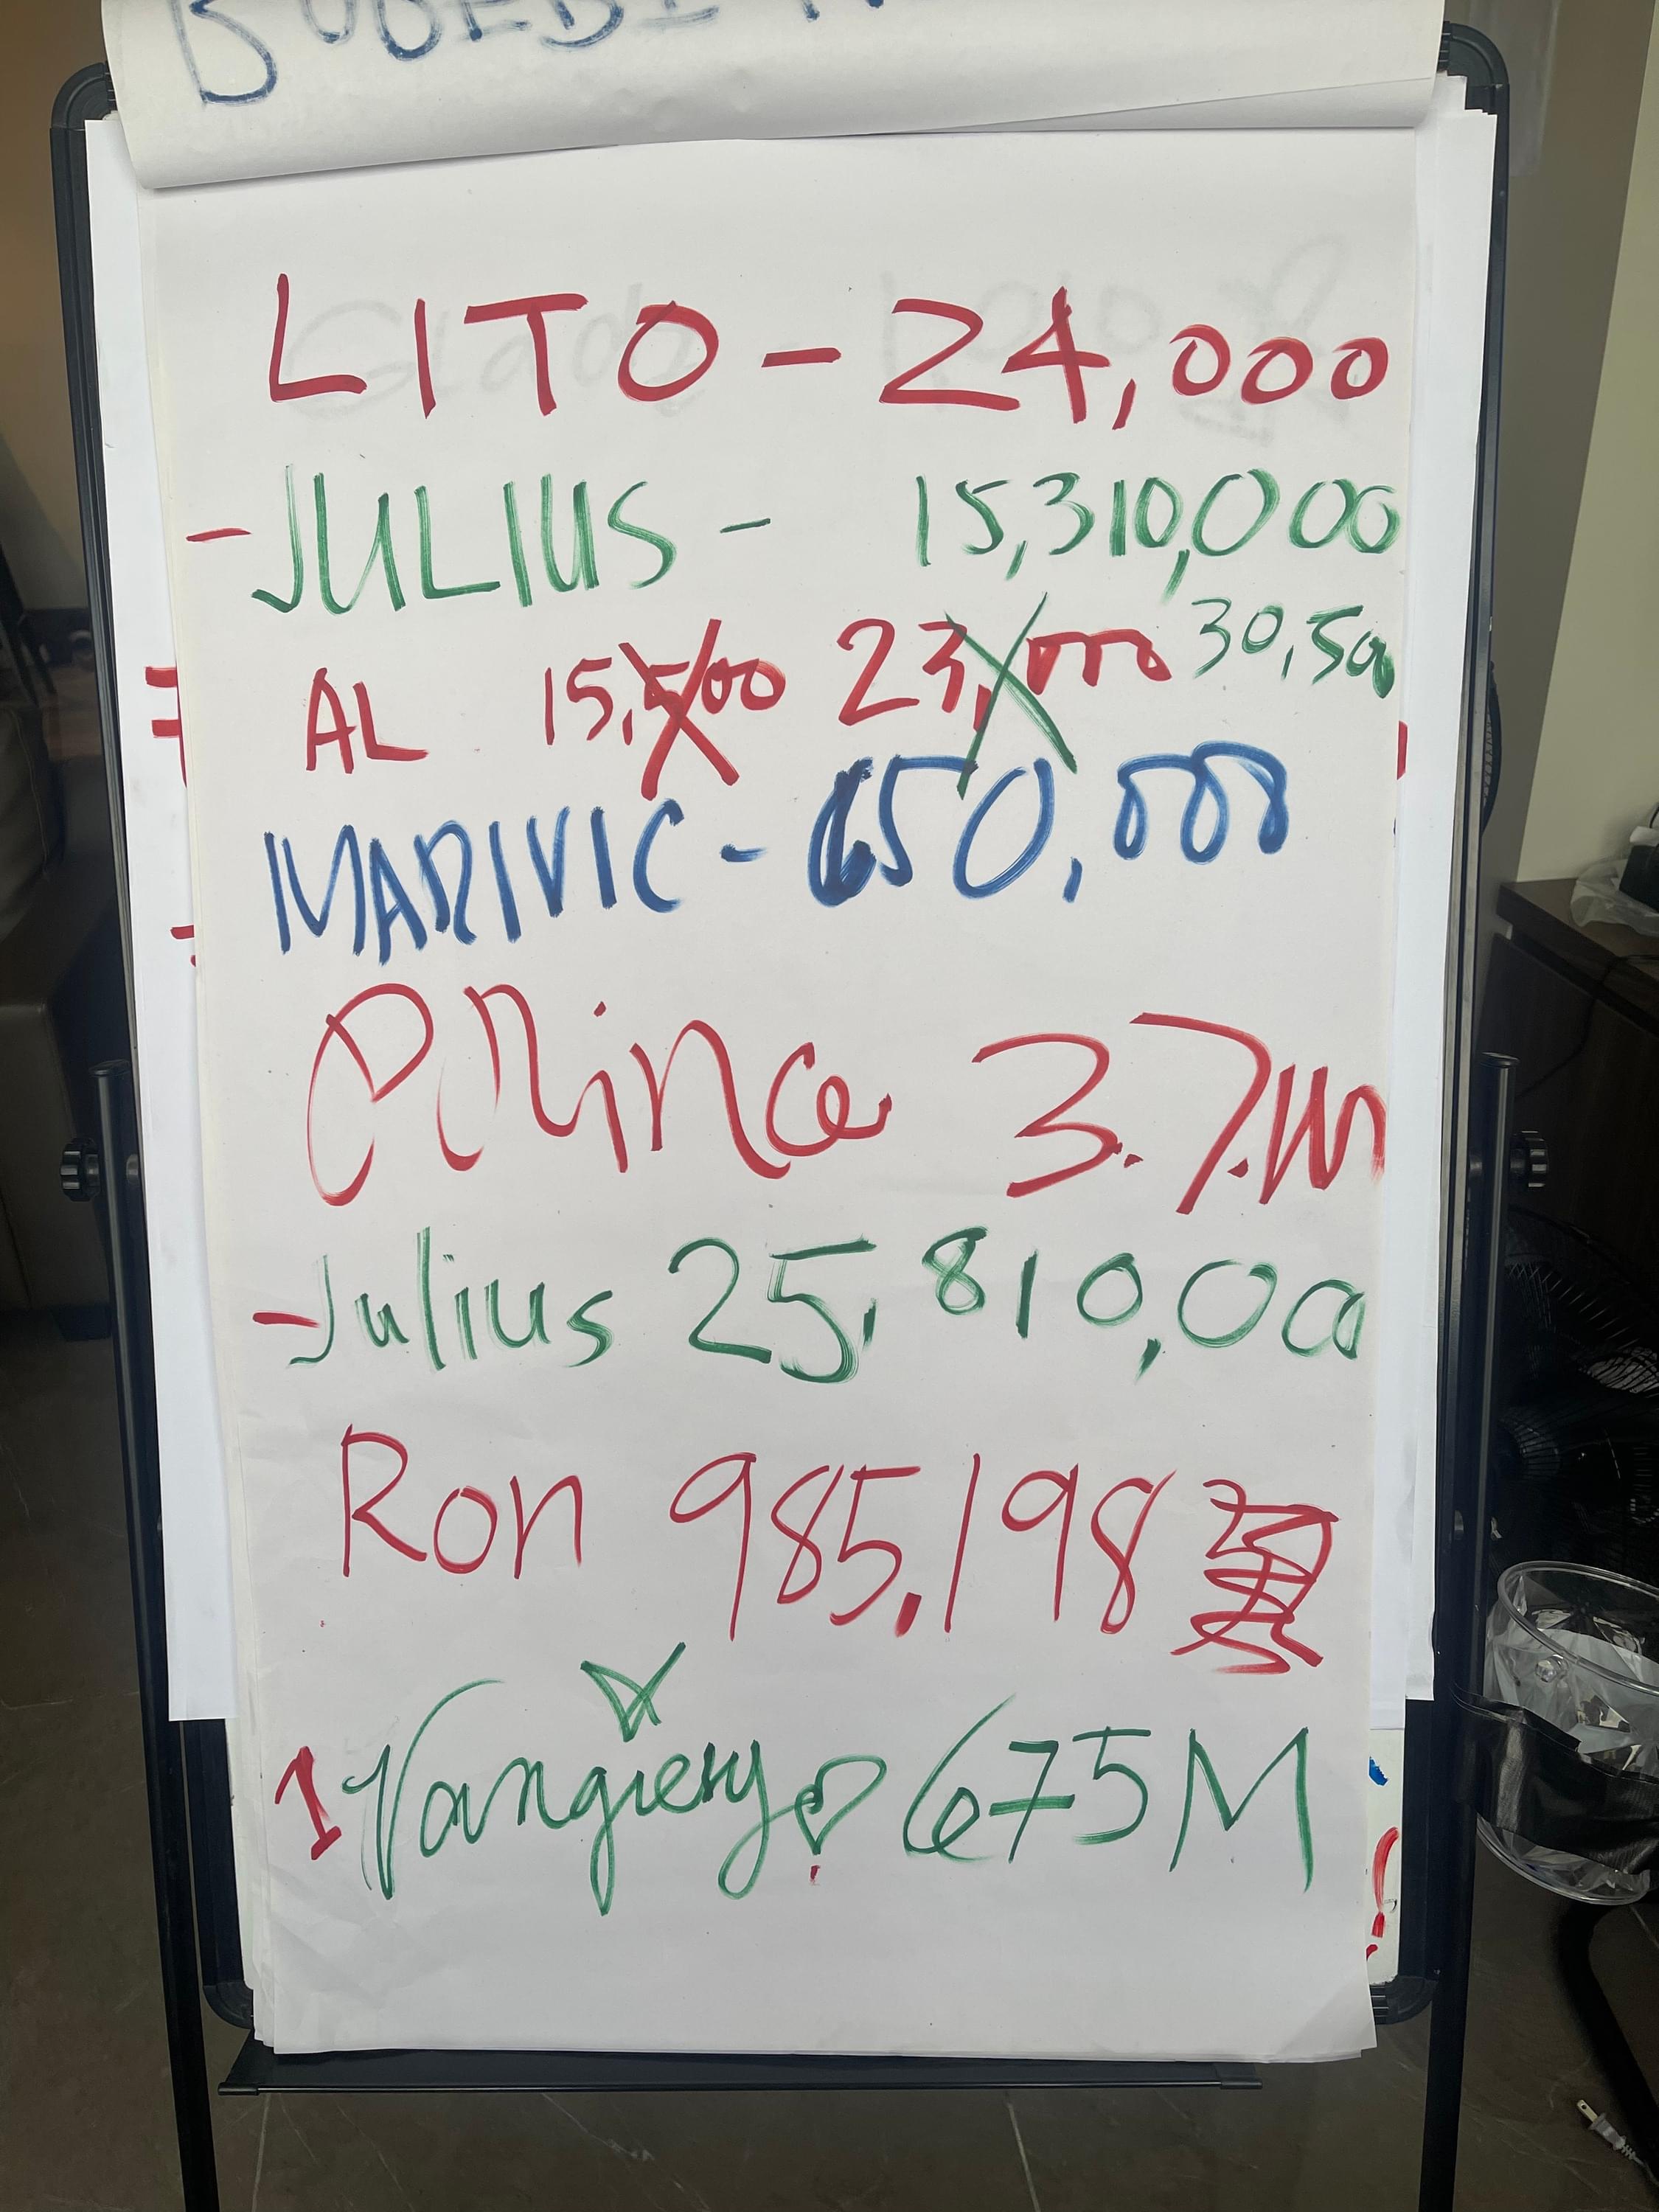 LITO - 24,000
- JULIUS - 15,310,000
AL 15,500 23,000 30,500
MARIVIC - 650,000
PRince 3.7.m
- Julius 25,810,000
Ron 985,198
1 675M